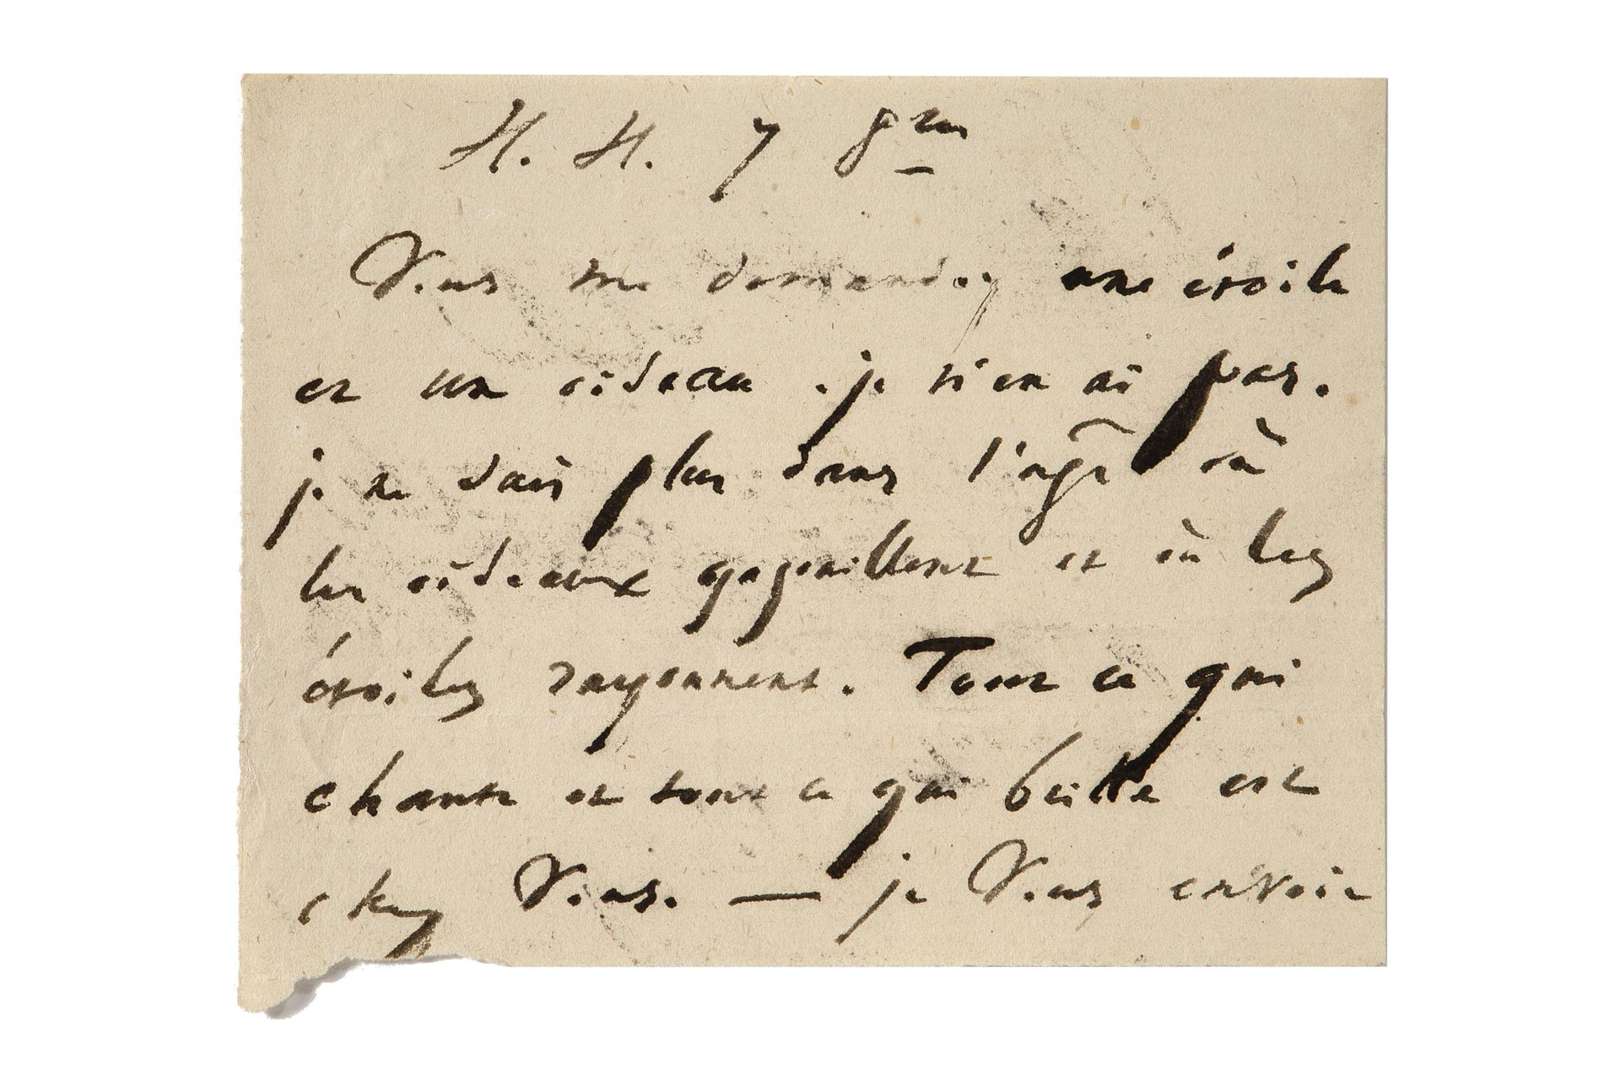 H. H. 7 9bre
Vous me demandez une étoile
et un oiseau. je n'en ai pas.
je ne suis plus dans l'âge où
les oiseaux gazouillent et où les
étoiles rayonnent. Tout ce qui
chante et tout ce qui brille est
chez Vous. — je Vous envoie